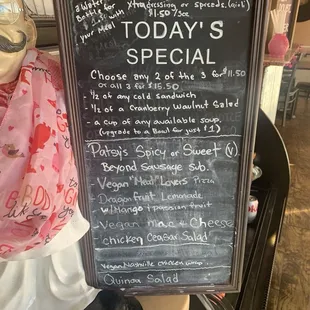 a Water
Bottle for
$1.50 with
your Meal
xtra dressing or spreads.
$1.50/3oz
TODAY'S
SPECIAL
Choose any 2 of the 3 for $11.50
or all 3 for $15.50
- ½ of any cold sandwich
- ½ of a Cranberry Waulnut Salad
- a cup of any available soup.
(upgrade to a Bowl for just $1)
Patsy's Spicy or Sweet (V)
Beyond Sausage Sub.
- Vegan "Meat" Lovers Pizza
- Dragon fruit Lemonade
w/Mango + passion fruit
- Vegan mac & Cheese
chicken Ceasar Salad
vegan Nashville chicken wrap
Quinoa Salad